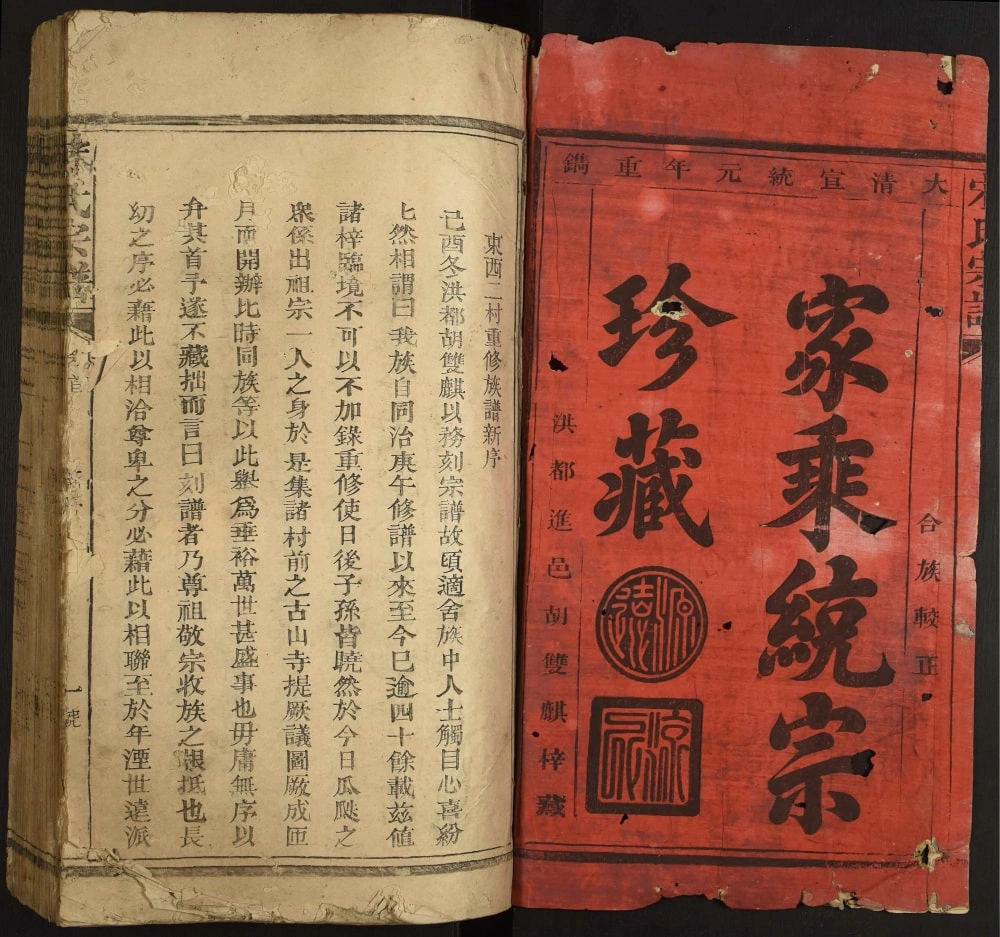 大清宣統元年重鐫
合族較正
家乘統宗
珍藏
洪都進邑胡雙麒梓藏
東西二村重修族譜新序
己酉冬洪都胡雙麒以務刻宗譜故頃適舍族中人士觸目心喜紛
七然相謂曰我族自同治庚午修譜以來至今已逾四十餘載茲值
諸梓臨境不可以不加錄重修使日後子孫皆曉然於今日瓜瓞之
眾係出祖宗一人之身於是集諸村前之古山寺提厥議圖厥成匝
月而開辦比時同族等以此舉為垂裕萬世甚盛事也毋庸無序以
弁其首予遂不藏拙而言曰刻譜者乃尊祖敬宗收族之根抵也長
幼之序必藉此以相洽尊卑之分必藉此以相聯至於年湮世遠派
氏宗譜
卷首
一號